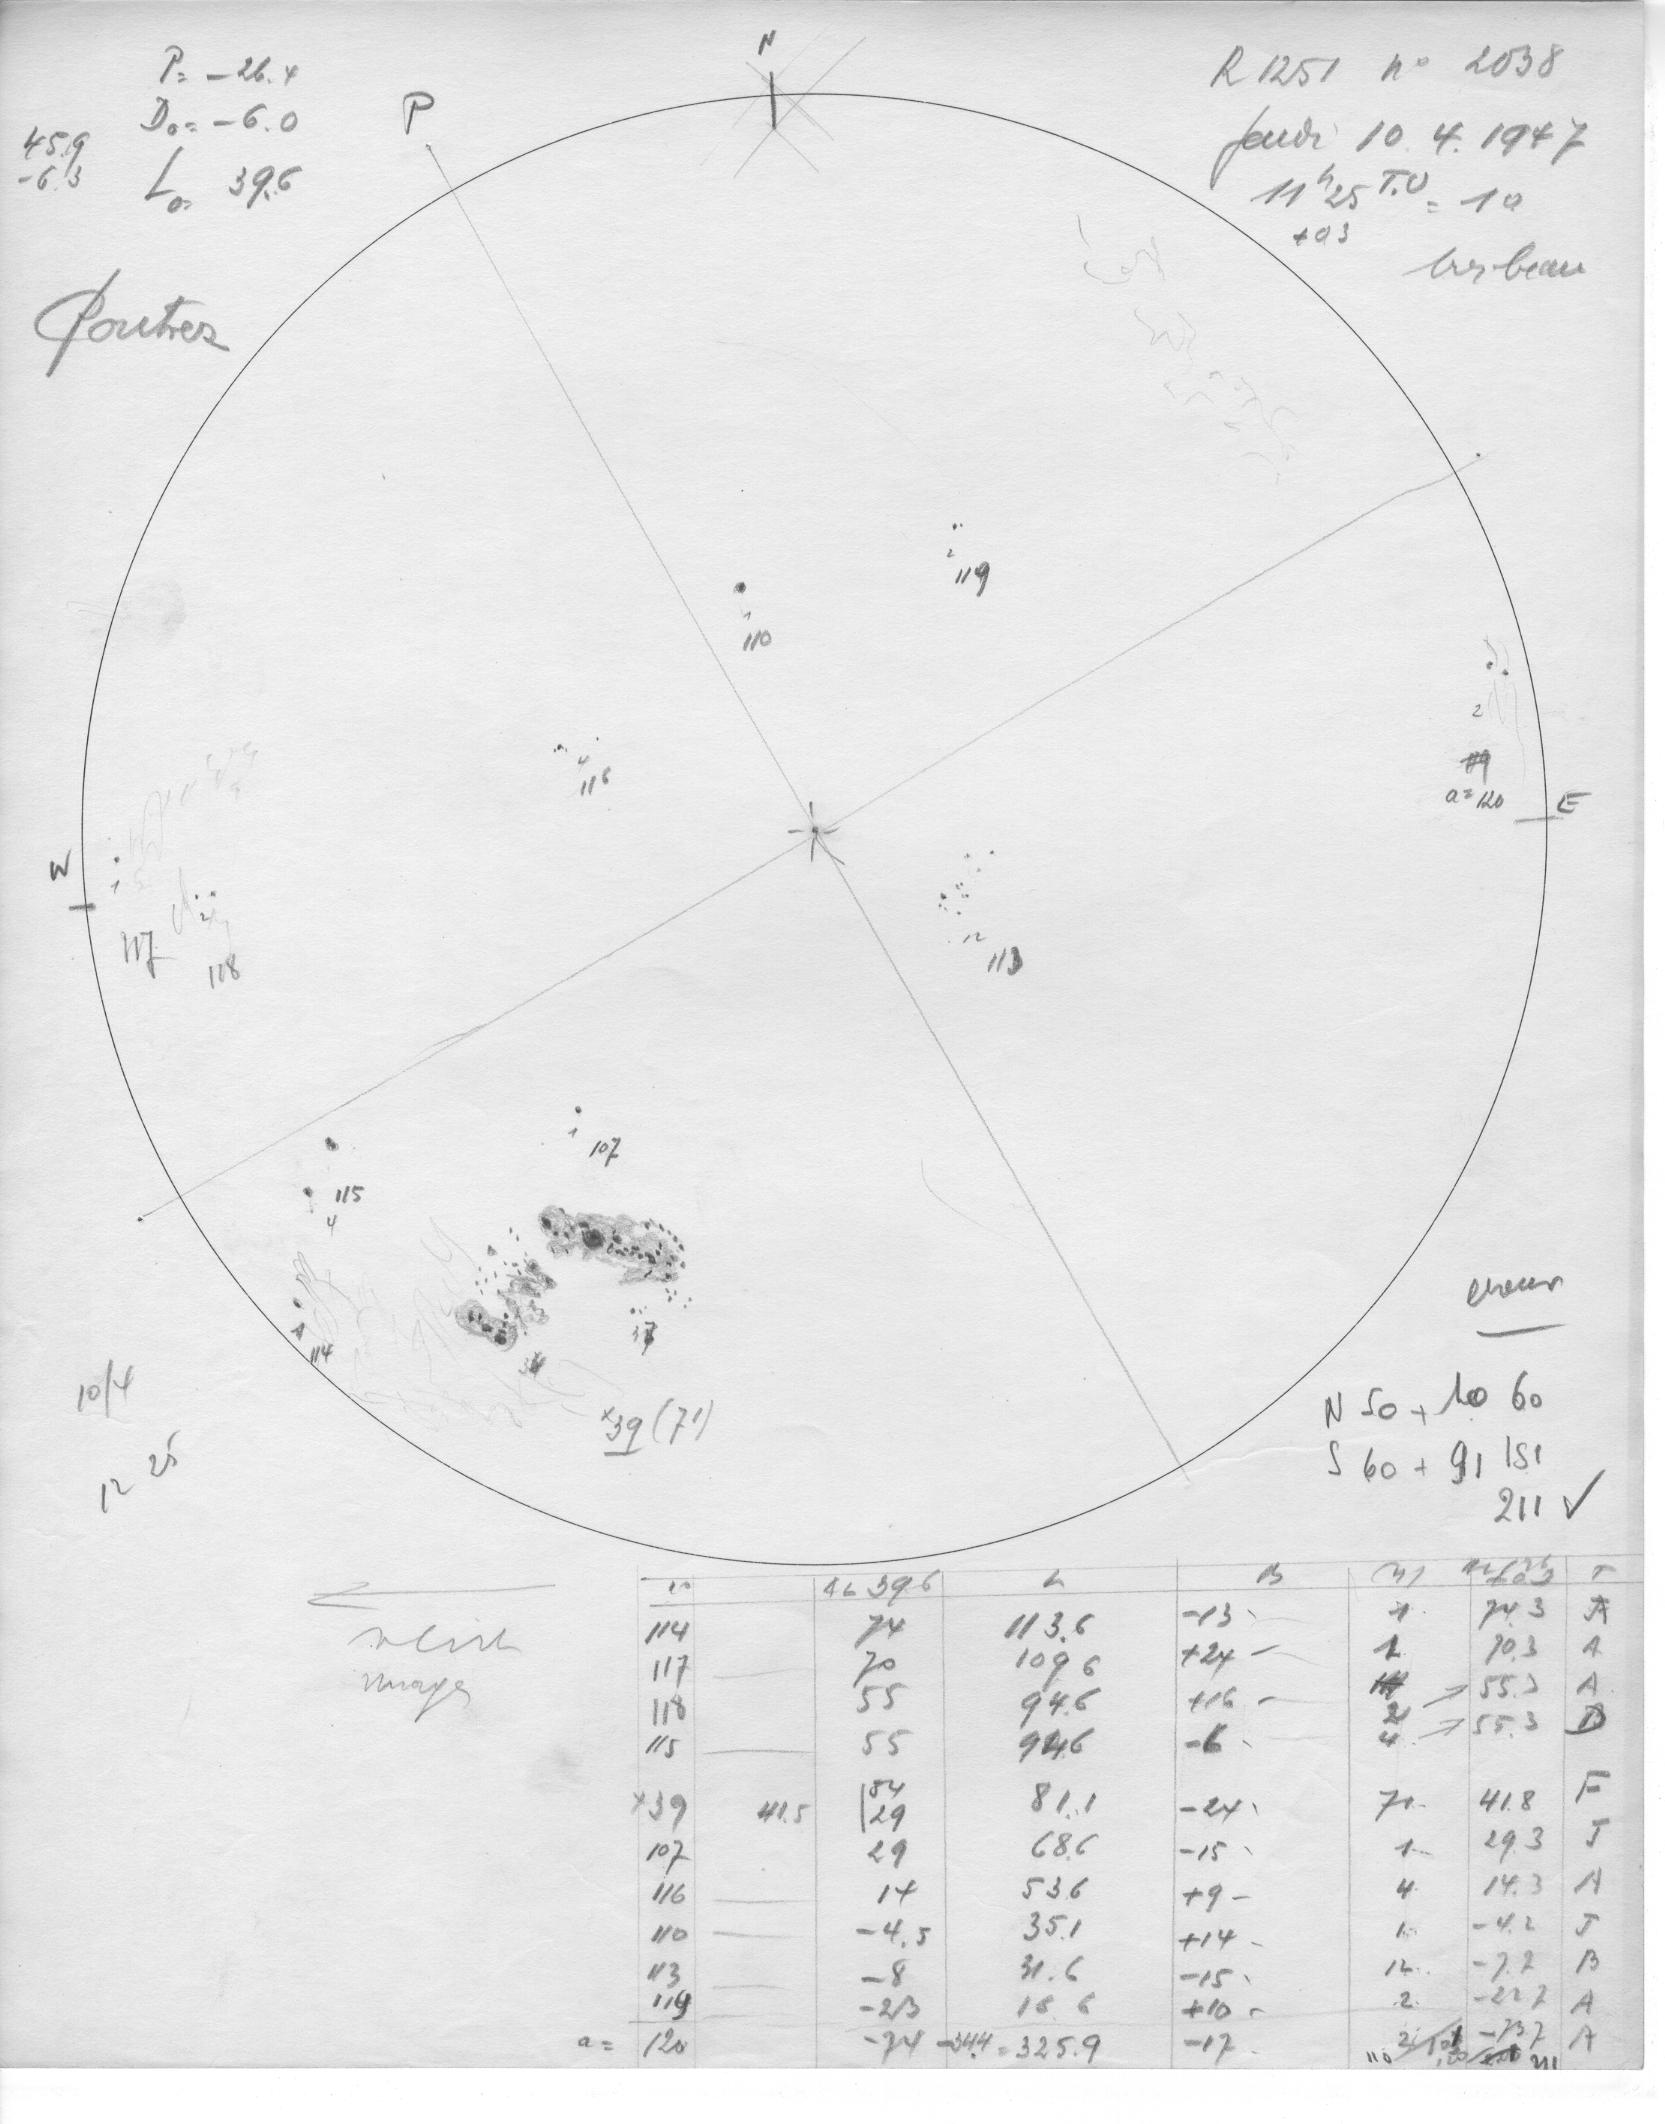 P = -26.4
D₀ = -6.0
L₀ = 39.6
45.9
-6.3
P
N
R 1251 n° 2038
Jeudi 10.4.1947
11h25 T.U = 10
+03
tres beau
119
2
110
1
2
a = 120
E
116
4
W
1
117
2
118
12
113
1
107
115
4
114
37
34
x39 (71)
10/4
12 25
N 50 + 10 60
S 60 + 91 151
211 ✓
n° ΔL 39.6 L B T
114 74 113.6 -13 1 74.3 A
117 70 109.6 +24 1 70.3 A
118 55 94.6 +16 2 55.3 A
115 55 94.6 -6 4 55.3 D
x39 41.5 54 29 81.1 -24 71 41.8 F
107 29 68.6 -15 1 29.3 J
116 14 53.6 +9 4 14.3 A
110 -4.5 35.1 +14 1 -4.2 J
113 -8 31.6 -15 12 -7.7 B
119 -23 16.6 +10 2 -22.7 A
a = 120 -74 -34.4 = 325.9 -17 2 -73.7 A
110 211